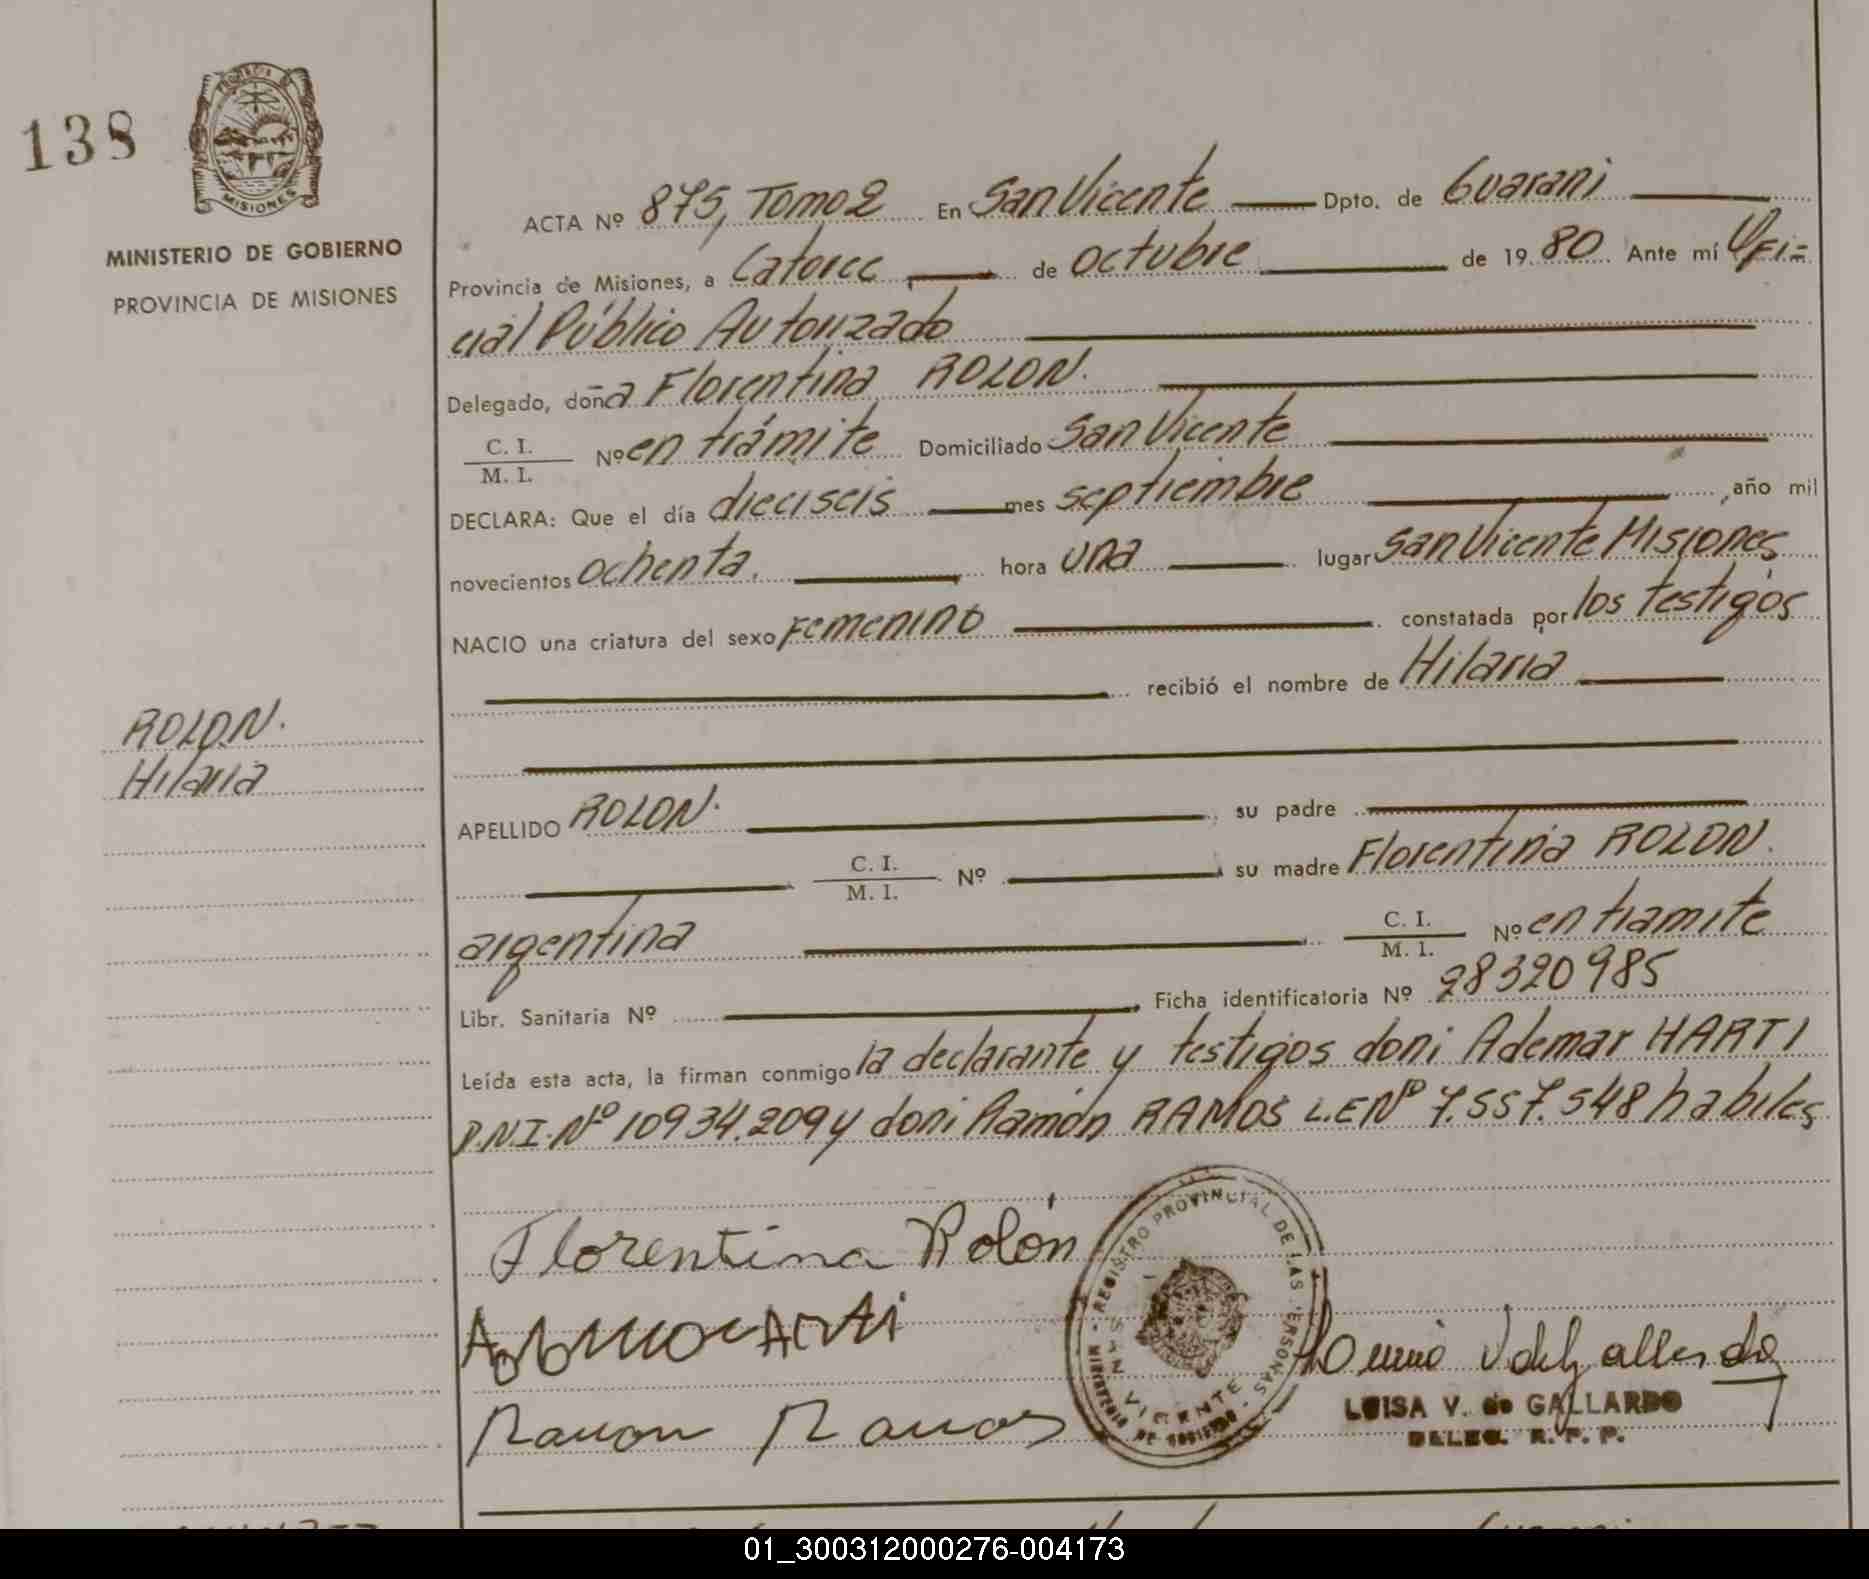 138
PROVINCIA DE
MISIONES
MINISTERIO DE GOBIERNO
PROVINCIA DE MISIONES
ROLON.
Hilaria
ACTA Nº 875, Tomo 2 En San Vicente Dpto. de Guarani
Provincia de Misiones, a Catorce de octubre de 1980. Ante mí Ofi=
cial Público Autorizado
Delegado, doña Florentina ROLON.
C. I.
M. I. Nº en trámite Domiciliado San Vicente
DECLARA: Que el día dieciseis mes septiembre, año mil
novecientos ochenta. hora una lugar San Vicente Misiones
NACIO una criatura del sexo Femenino constatada por los testigos
recibió el nombre de Hilaria
APELLIDO ROLON. su padre
C. I.
M. I. Nº su madre Florentina ROLON.
argentina C. I.
M. I. Nº en tramite
Libr. Sanitaria Nº Ficha identificatoria Nº 28320985
Leída esta acta, la firman conmigo la declarante y testigos doni Ademar HARTI
D.N.I. Nº 10934.209 y doni Ramón RAMOS L.E Nº 7.557.548 habiles
Florentina Rolón
Ramon Ramos
REGISTRO PROVINCIAL DE LAS PERSONAS
MINISTERIO DE GOBIERNO
SAN VICENTE
LUISA V. de GALLARDO
DELEG. R. P. P.
01_300312000276-004173